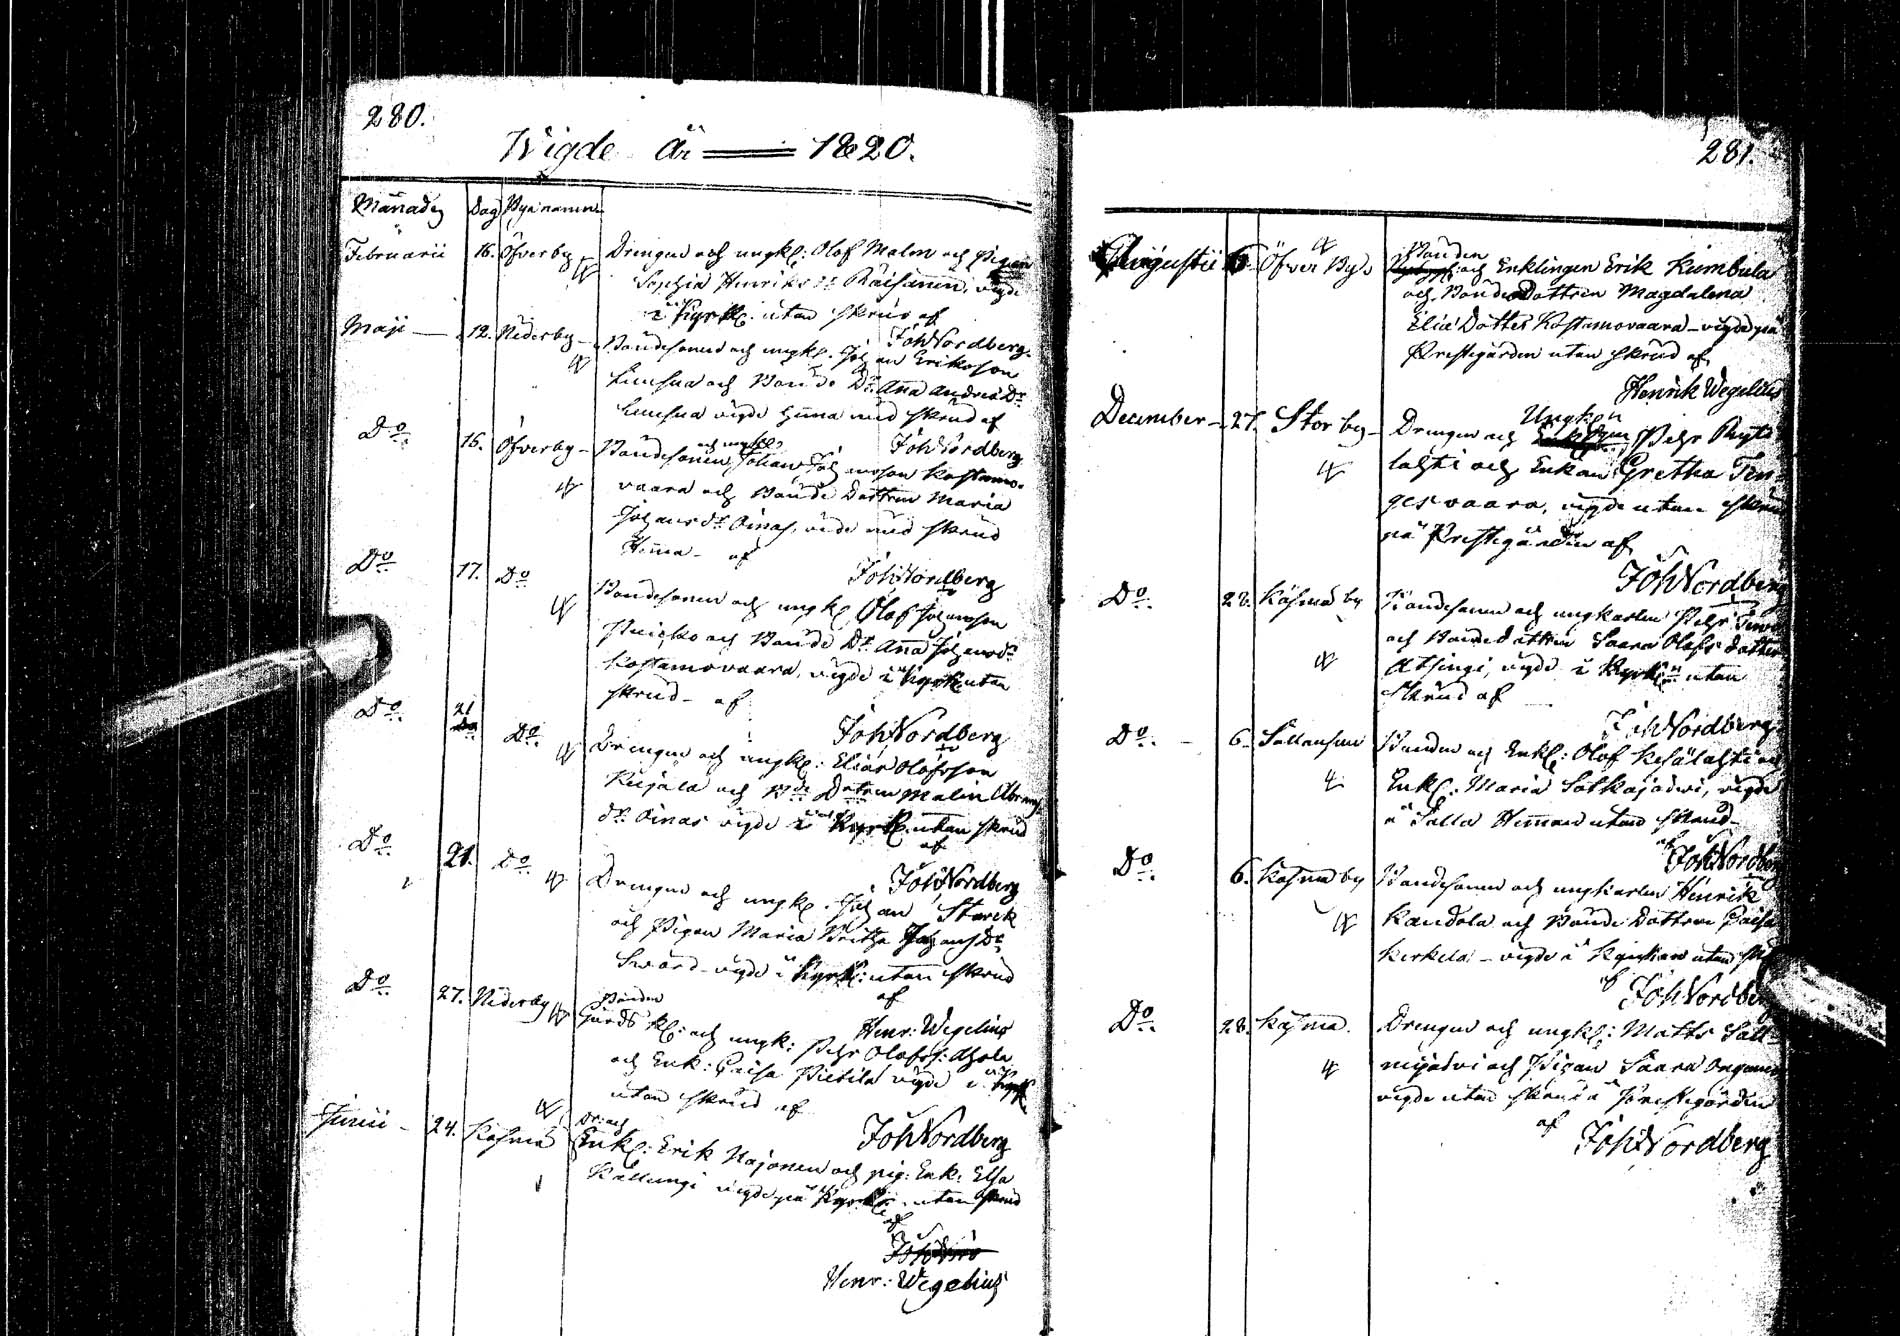 280.
Wigde År 1820.
Månader Dag Byanamn
Februarii 16. Öfverby Drängen och ungk: Olof Malm och Pigan
Sophia Henriks Dr Räisänen, vigde
i Kyrk: utan skrud af
Joh Nordberg.
Maji 12. Nederby Bondesonen och ungk. Johan Eriksson
och Bonde Dr. Anna Anders Dr
vigde hemma med skrud af
Joh Nordberg
Do 16. Öfverby Bondesonen och ungk. Johan Johansson Kostamo-
vaara och Bonde Dottren Maria
Johans dr Oinas, vigde med skrud
Hema af
Joh Nordberg
Do 17. Do Bondesonen och ungk. Olof Johansson
och Bonde Dr Anna Johans dr
Kostamovaara, vigde i kyrk utan
skrud af
Joh Nordberg
Do 21 Do Drengen och ungk: Elias Olofsson
Kujala och Bde Dotren Malin Abrams
dr Oinas vigde i Kyrk. utan skrud
af
Joh Nordberg
Do 21. Do Drengen och ungk. Johan Starck
och Pigan Maria Britha Johans Dr
Svärd vigde i Kyrk: utan skrud
af
Henr: Wegelius
Do 27. Nederby Bonden
och ungk: Pehr Olofss:
och Enk: Caisa Pietilä vigde i Kyrk
utan skrud af
Joh Nordberg
Junii 24. Kasma Dr: och
Enkl: Erik Najanen och pig: Enk: Elsa
Kallungi vigde på Kyrk: utan skrud
af
Henr: Wegelius
281.
Augustii 6. Öfver By Bonden
och Enklingen Erik Kumbula
och Bonde Dottren Magdalena
Elias Dotter Kostamovaara vigde på
Prestegården utan skrud af
Henrik Wegelius
December 27. Stor by Drengen och Ungken Pehr
lahti och Enkan Gretha Ten-
gesvaara, vigde utan skrud
på Prestegården af
Joh Nordberg
Do. 28. Kasma by Bondesonen och ungkarlen Pehr
och Bonde dottren Saara Olofs dotter
Atsingi, vigde i Kyrk utan
skrud af
Joh Nordberg
Do. 6. Bonden och Enkl: Olof Kesälahti och
Enk. Maria Sotkajärvi, vigde
i Salla utan skrud
af Joh Nordberg
Do 6. Kasma by Bondesonen och ungkarlen Henrik
Kandola och Bonde Dottren Caisa
Kerkelä vigde i Kyrkan utan
af Joh Nordberg
Do 28. Kasma. Drengen och ungk: Matts Sall-
mijärvi och Pigan Saara
vigde utan skrud i Prestegården
af Joh: Nordberg